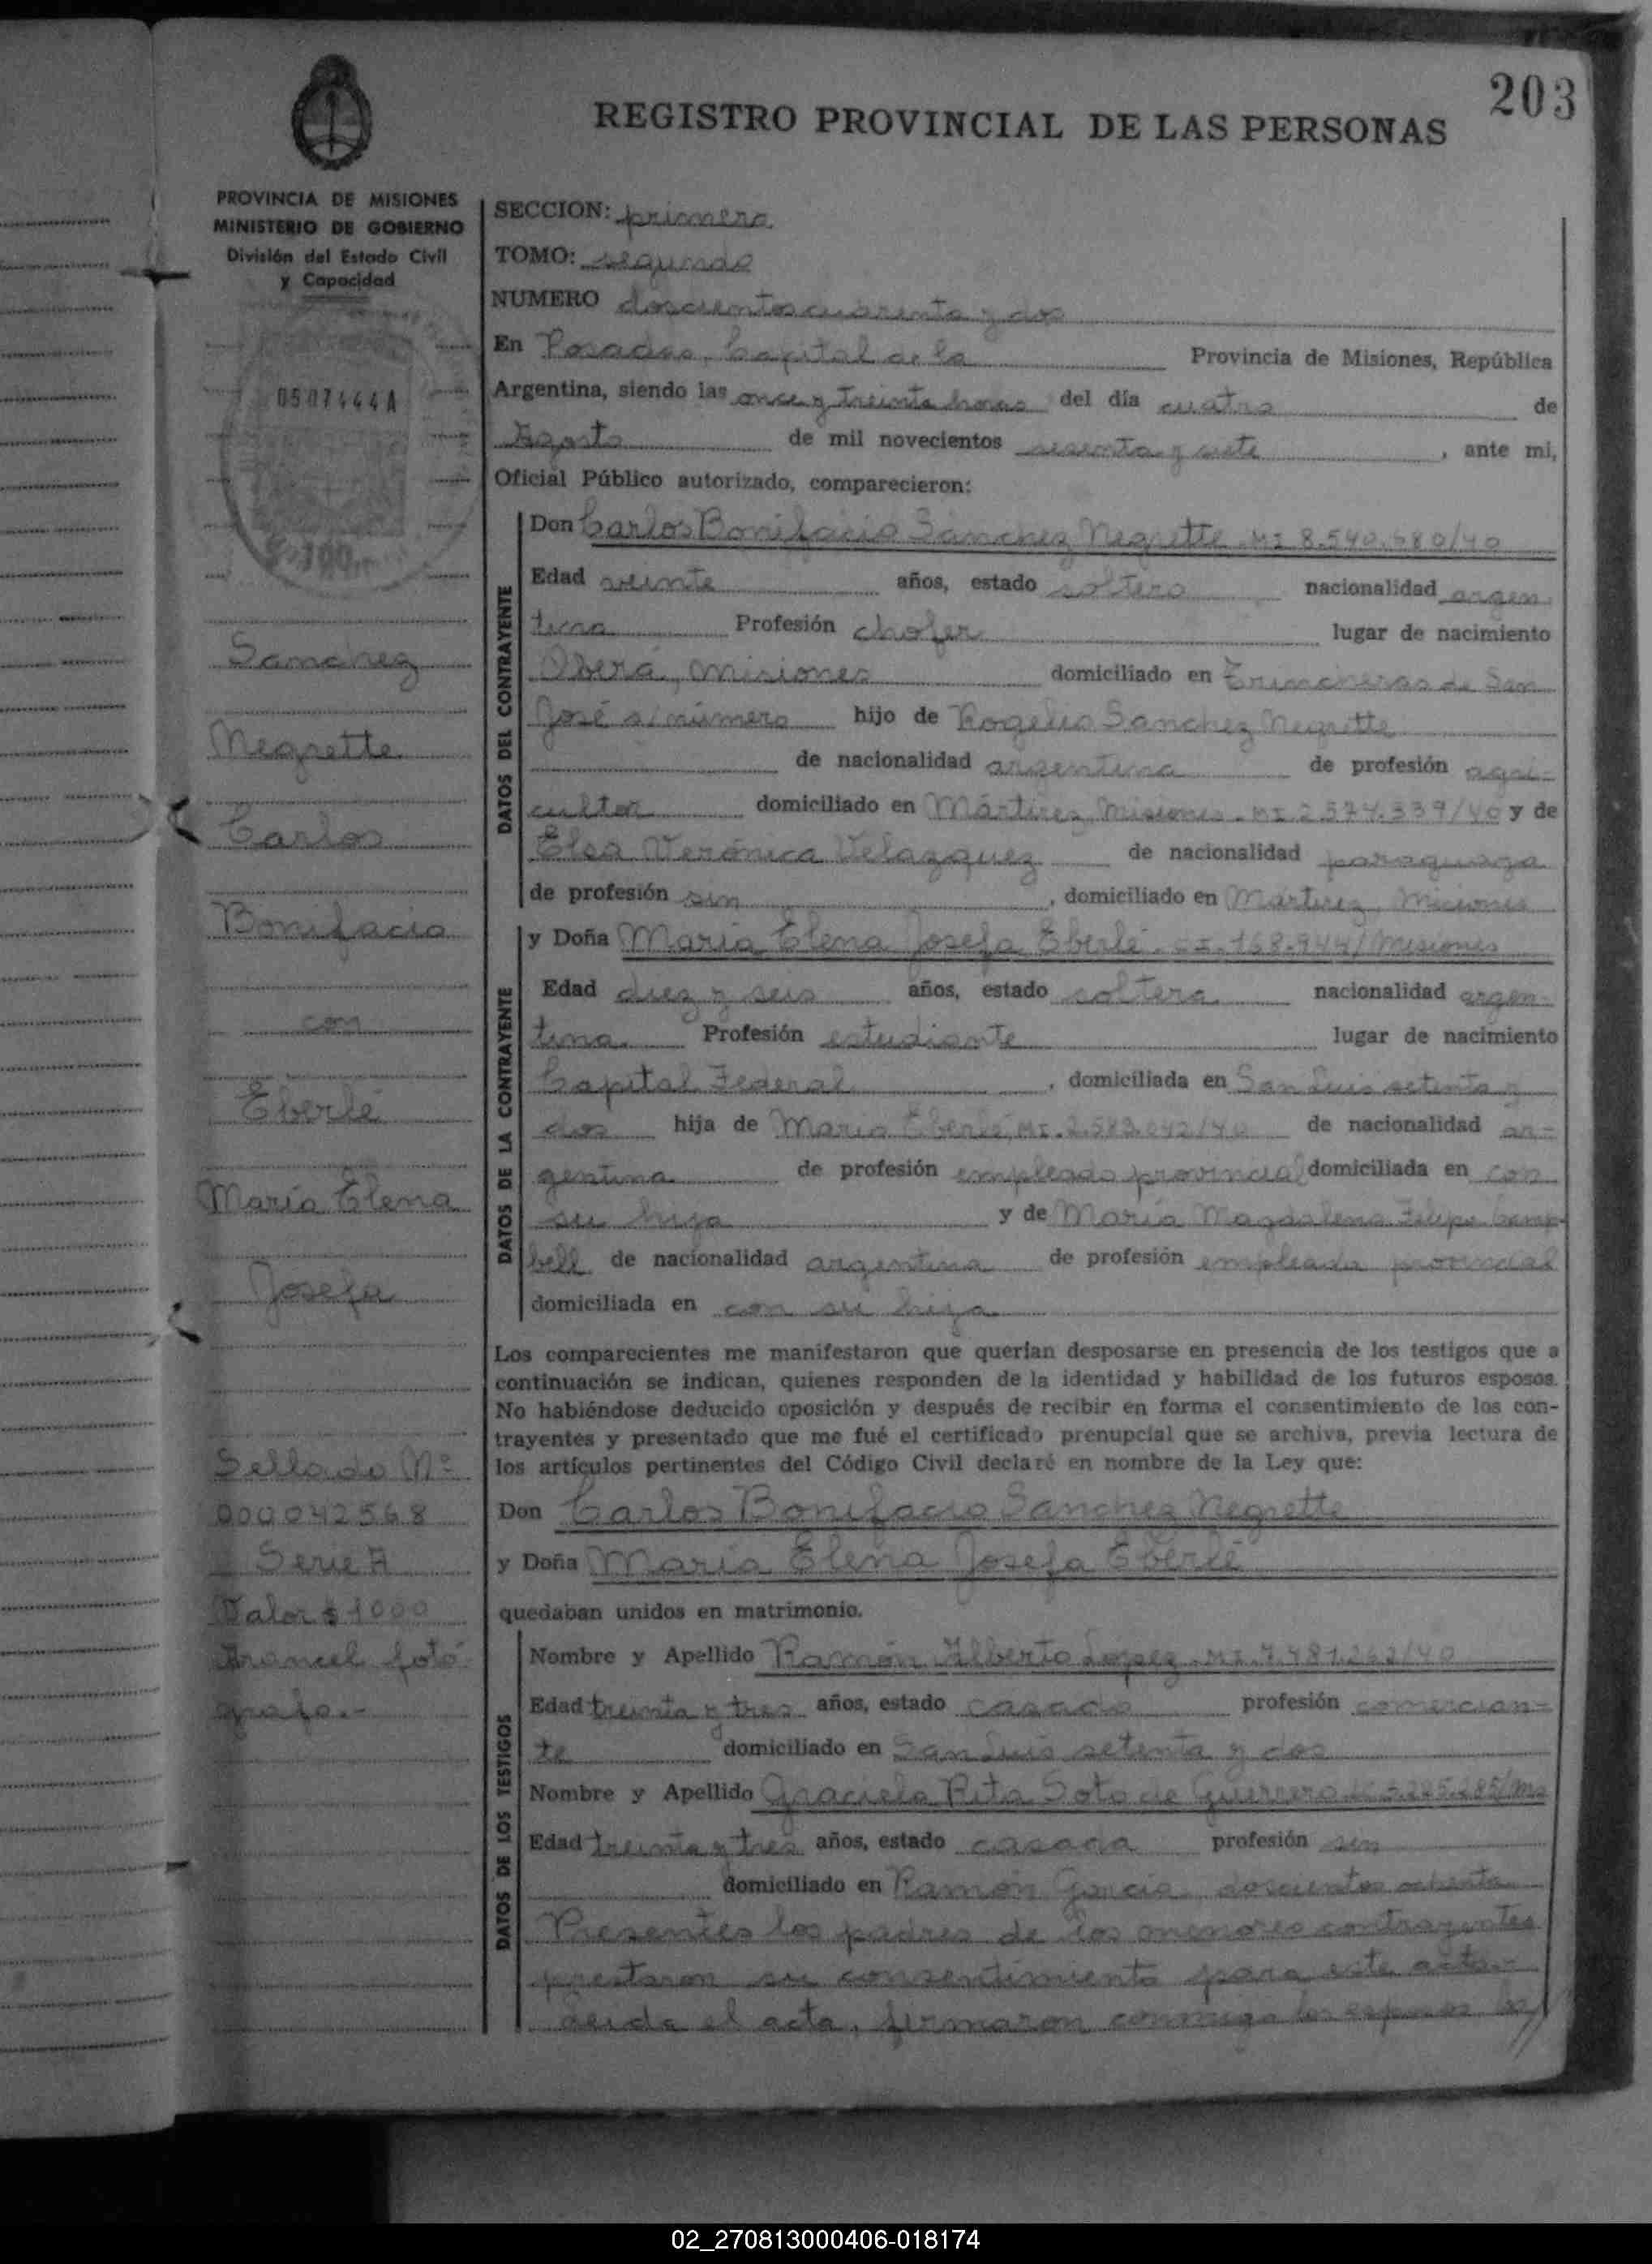 203
REGISTRO PROVINCIAL DE LAS PERSONAS
PROVINCIA DE MISIONES
MINISTERIO DE GOBIERNO
División del Estado Civil
y Capacidad
0507444A
$ 100
Sanchez
Negrette
Carlos
Bonifacio
con
Eberlé
María Elena
Josefa
Sellado Nº
000042568
Serie A
Valor $ 1000
Arancel fotó
grafo.-
SECCION: primera
TOMO: segundo
NUMERO doscientos cuarenta y dos
En Posadas, Capital de la Provincia de Misiones, República
Argentina, siendo las once y treinta horas del día cuatro de
Agosto de mil novecientos sesenta y siete, ante mi,
Oficial Público autorizado, comparecieron:
DATOS DEL CONTRAYENTE
Don Carlos Bonifacio Sánchez Negrette. MI 8.540.580/40
Edad veinte años, estado soltero nacionalidad argen
tina Profesión chofer lugar de nacimiento
Oberá, Misiones domiciliado en Trincheras de San
José s/número hijo de Rogelio Sanchez Negrette
de nacionalidad argentina de profesión agri-
cultor domiciliado en Mártires, Misiones. MI 2.574.339/40 y de
Elsa Verónica Velazquez de nacionalidad paraguaya
de profesión sin, domiciliado en Mártires, Misiones
DATOS DE LA CONTRAYENTE
y Doña María Elena Josefa Eberlé. CI. 168.944/Misiones
Edad diez y seis años, estado soltera nacionalidad argen-
tina. Profesión estudiante lugar de nacimiento
Capital Federal, domiciliada en San Luis setenta y
dos hija de Mario Eberlé MI. 2.583.042/40 de nacionalidad ar-
gentina de profesión empleado provincial domiciliada en con
su hija y de María Magdalena Felipa Camp-
bell de nacionalidad argentina de profesión empleada provincial
domiciliada en con su hija
Los comparecientes me manifestaron que querían desposarse en presencia de los testigos que a
continuación se indican, quienes responden de la identidad y habilidad de los futuros esposos.
No habiéndose deducido oposición y después de recibir en forma el consentimiento de los con-
trayentes y presentado que me fué el certificado prenupcial que se archiva, previa lectura de
los artículos pertinentes del Código Civil declaré en nombre de la Ley que:
Don Carlos Bonifacio Sanchez Negrette
y Doña María Elena Josefa Eberlé
quedaban unidos en matrimonio.
DATOS DE LOS TESTIGOS
Nombre y Apellido Ramón Alberto Lopez. MI. 7.481.262/40
Edad treinta y tres años, estado casado profesión comercian-
te domiciliado en San Luis setenta y dos
Nombre y Apellido Graciela Rita Soto de Guerrero
Edad treinta y tres años, estado casada profesión sin
domiciliado en Ramón García doscientos ochenta
Presentes los padres de los menores contrayentes
prestaron su consentimiento para este acto.-
Leida el acta, firmaron conmigo los esposos los
02_270813000406-018174